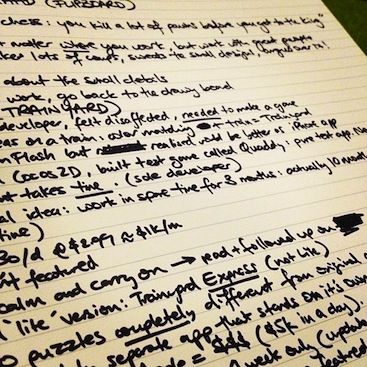 (FLIPBOARD)
chess: you kill a lot of pawns before you get the king"
matter where you work, but work with great people
of court, sweats to small design,
about the small details
work, go back to the drawing board
TRAINYARD)
developer, felt disaffected, needed to make a game
on a train: color matching + train = Trainyard
in Flash but realized would be better as iPhone app
(COCOS2D, built test game called Quaddy: pure test app,
takes time. (sole developer)
idea: work in spare time for 3 months: actually 10 months
time)
30/d @ $2.99 ≈ $1k/m
featured
calm and carry on → read + followed up on
'lite' version: Trainyard Express (not Lite)
puzzles completely different from original
separate app that stands on it's own
= $$$ ($5k in a day).
week only (update
featured